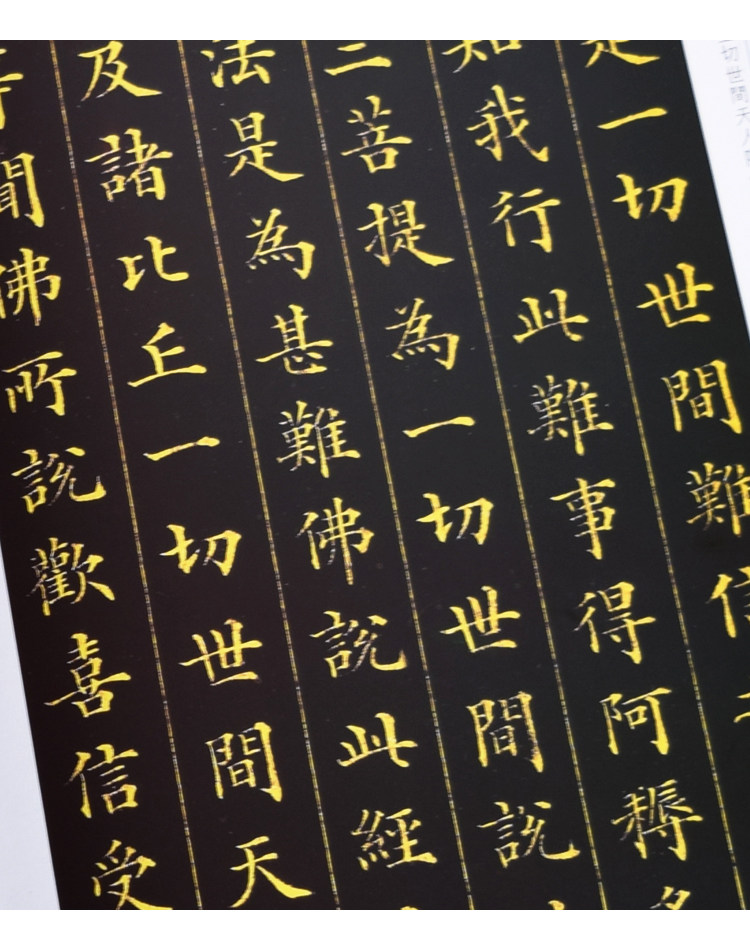 切世間天人
是一切世間難信
知我行此難事得阿耨
三菩提為一切世間說
法是為甚難佛說此經
及諸比丘一切世間天
聞佛所說歡喜信受